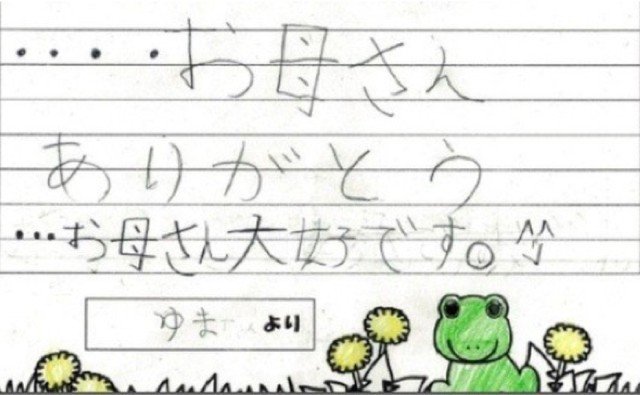 ・・・・お母さん
ありがとう
・・・お母さん大好です。^^
ゆま より